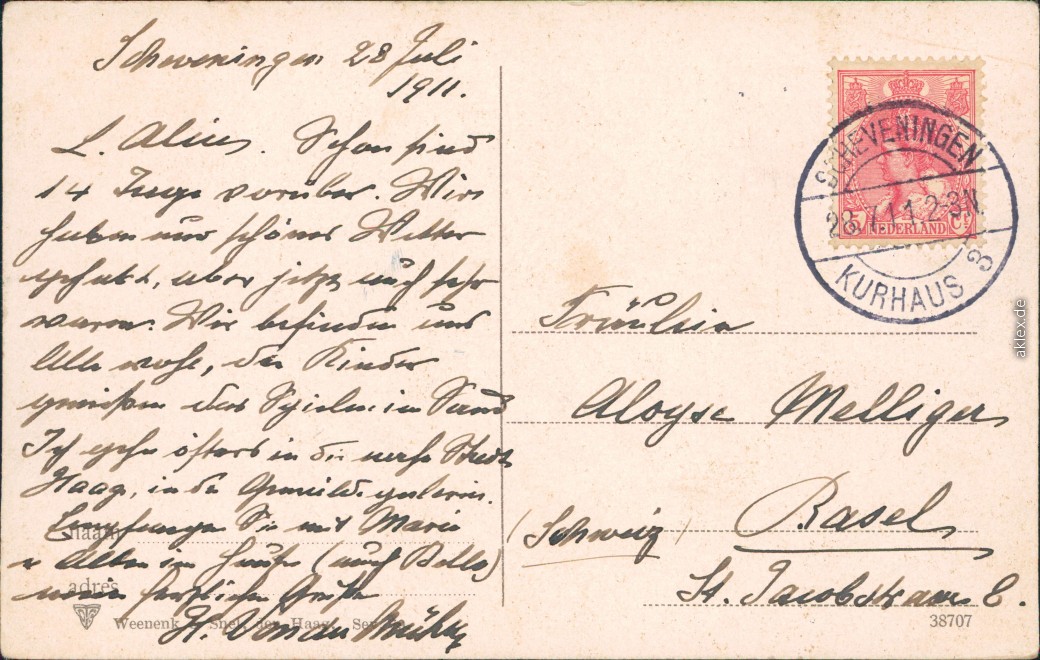 Scheveningen 28 Juli
1911.
L. Schon sind
14 Tage vorüber. Wir
haben nur schönes Wetter
gehabt, aber jetzt auch sehr
warm. Wir befinden uns
Alle wohl, die Kinder
genießen das Spielen im Sand
Ich gehe öfters in die nahe Stadt
Haag, in die Gemäldegalerie.
Empfangen Sie mit Marie
u Allen im Hause (auch Bella)
meine herzlichen Grüße
H. Von der Mühll
naam
adres
Weenenk & Snel, den Haag, Sev
SCHEVENINGEN
28.7.11.2-3N
KURHAUS 3
5 NEDERLAND CT
Fräulein
Aloyse Melliger
Basel
(Schweiz)
St. Jacobstrasse 8.
38707
aklex.de